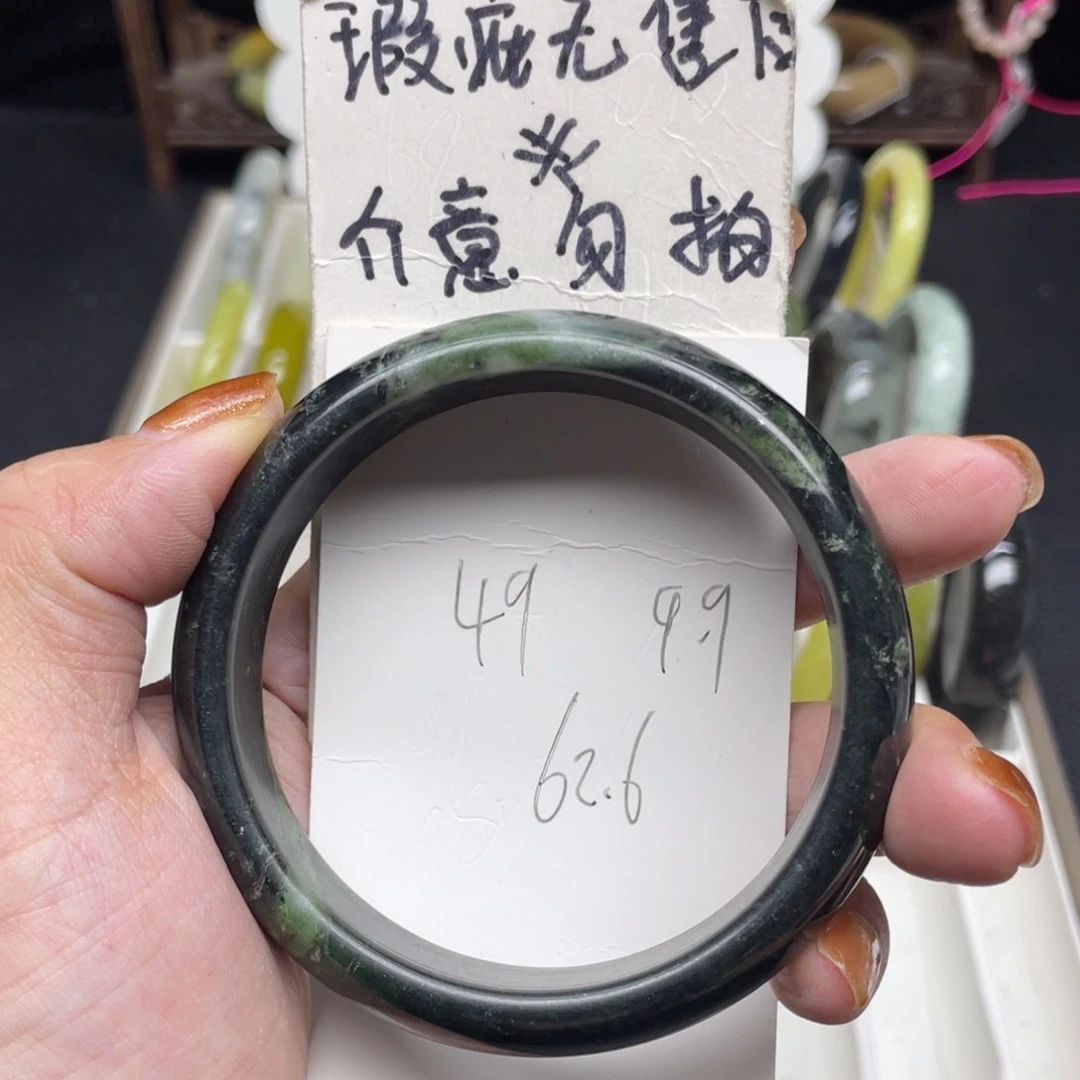 瑕疵无售后
介意勿拍
49 9.9
62.6